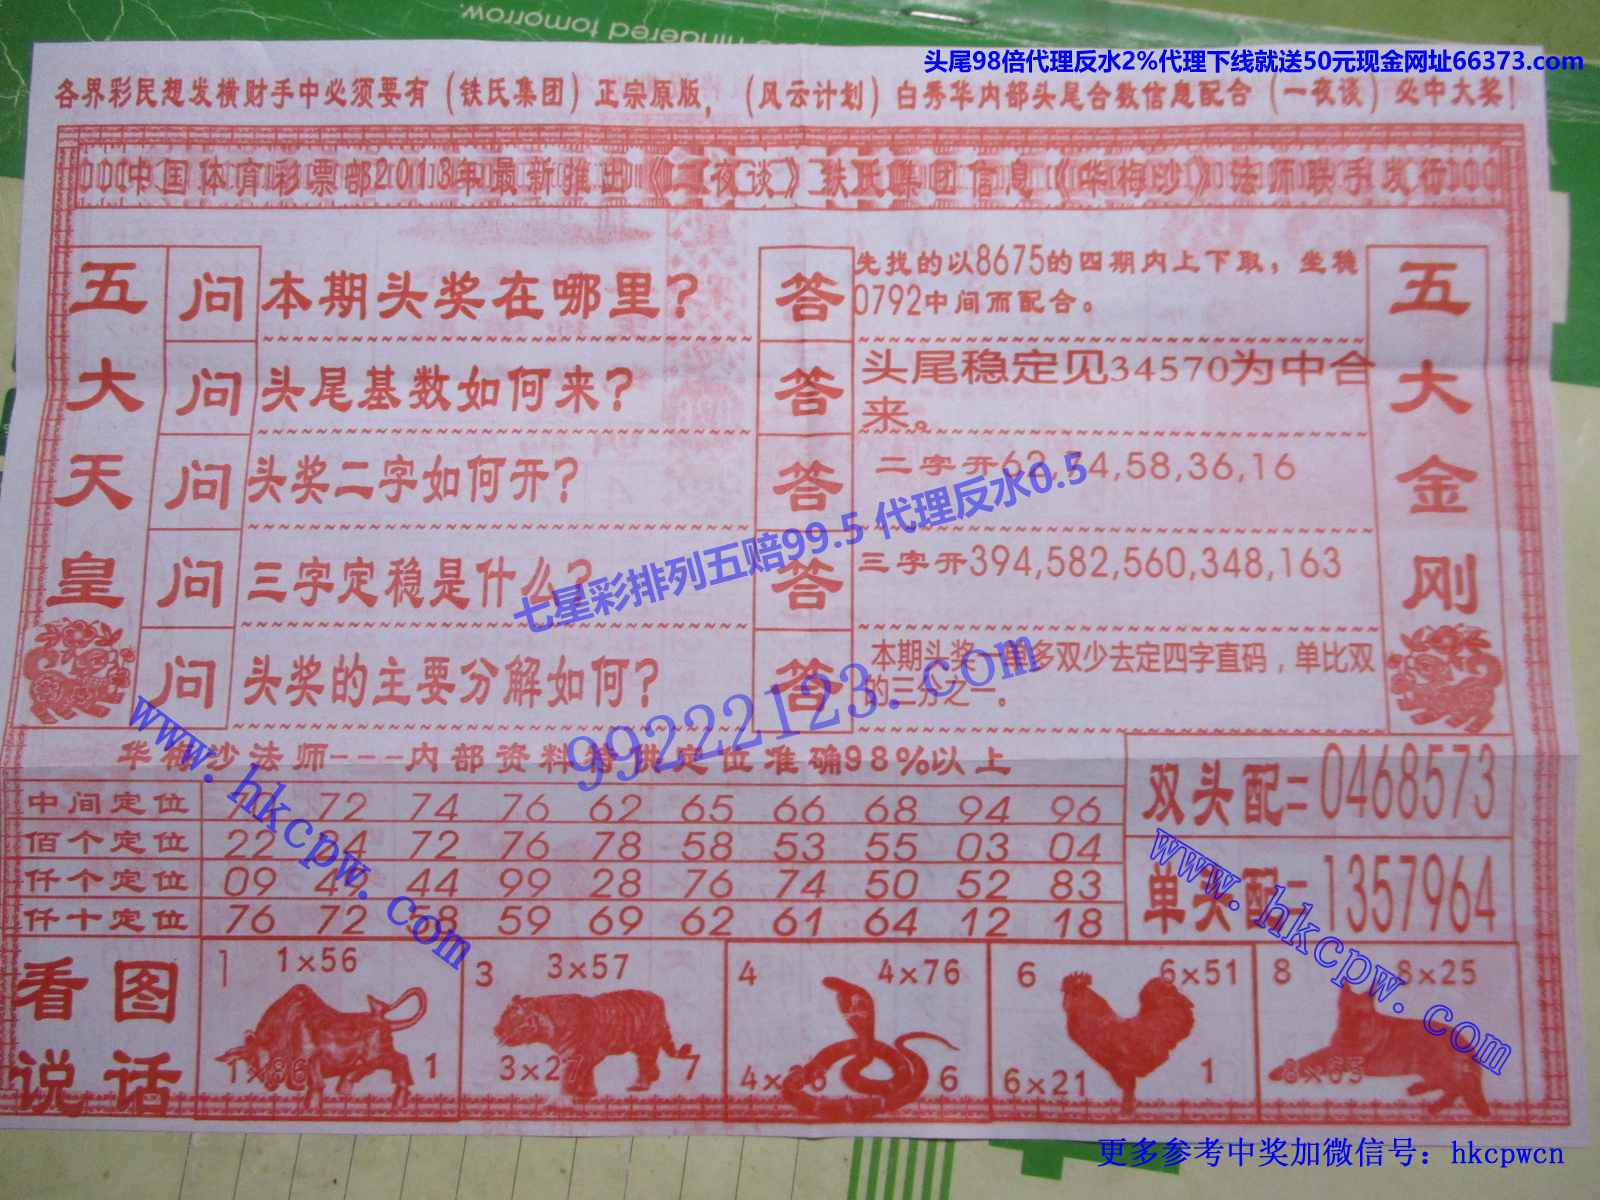 hindered tomorrow.
头尾98倍代理反水2%代理下线就送50元现金网址66373.com
各界彩民想发横财手中必须要有（铁氏集团）正宗原版，（风云计划）白秀华内部头尾合数信息配合（一夜谈）必中大奖！
中国体育彩票部2013年最新推出《一夜谈》铁氏集团信息《华梅沙》法师联手发行
五大天皇
问 本期头奖在哪里？
答 先找的以8675的四期内上下取，坐稳
0792中间而配合。
问 头尾基数如何来？
答 头尾稳定见34570为中合
来。
问 头奖二字如何开？
答 二字开62,74,58,36,16
问 三字定稳是什么？
答 三字开394,582,560,348,163
问 头奖的主要分解如何？
答 本期头奖一单多双少去定四字直码，单比双
的三分之一。
五大金刚
七星彩排列五赔99.5 代理反水0.5
99222123.com
www.hkcpw.com
www.hkcpw.com
华梅沙法师---内部资料特供定位准确98%以上
中间定位 72 74 76 62 65 66 68 94 96
佰个定位 22 24 72 76 78 58 53 55 03 04
仟个定位 09 49 44 99 28 76 74 50 52 83
仟十定位 76 72 58 59 69 62 61 64 12 18
双头配二0468573
单头配二1357964
看图
说话
1 1×56
1×86 1
3 3×57
3×27 7
4 4×76
4×26 6
6 6×51
6×21 1
8 8×25
8×65
更多参考中奖加微信号：hkcpwcn